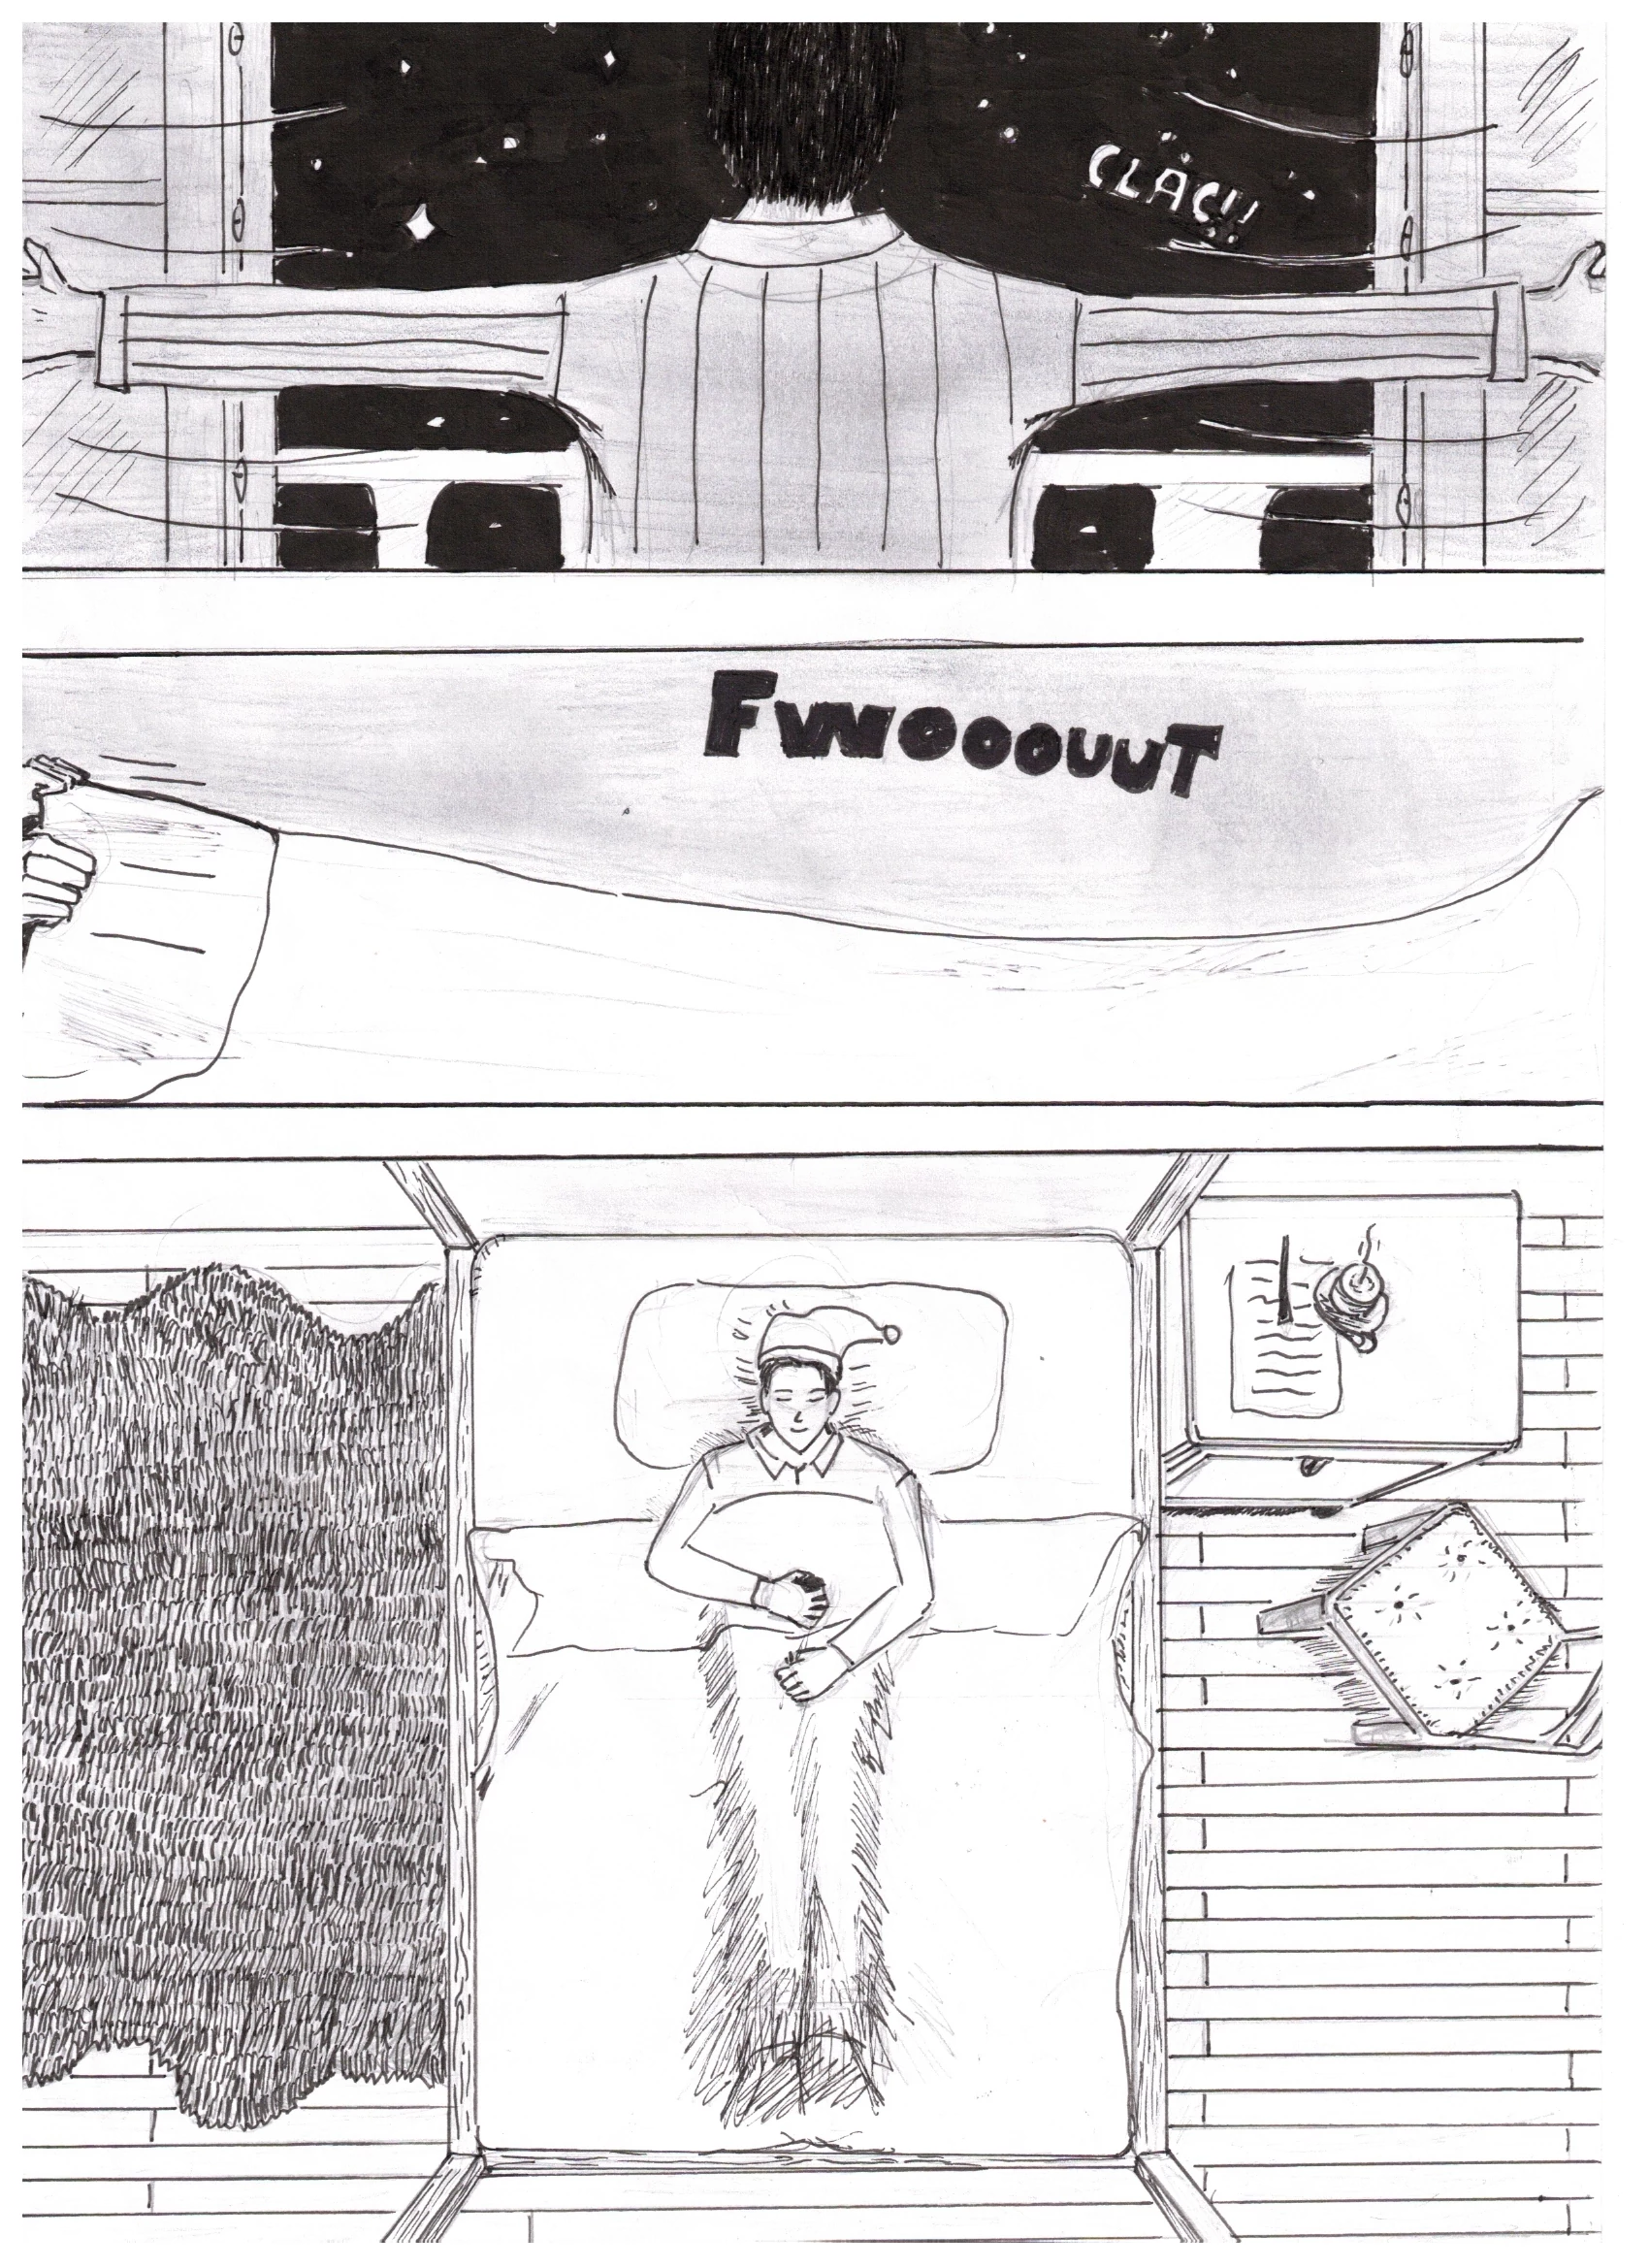 CLAC!!
FWOOOUUT